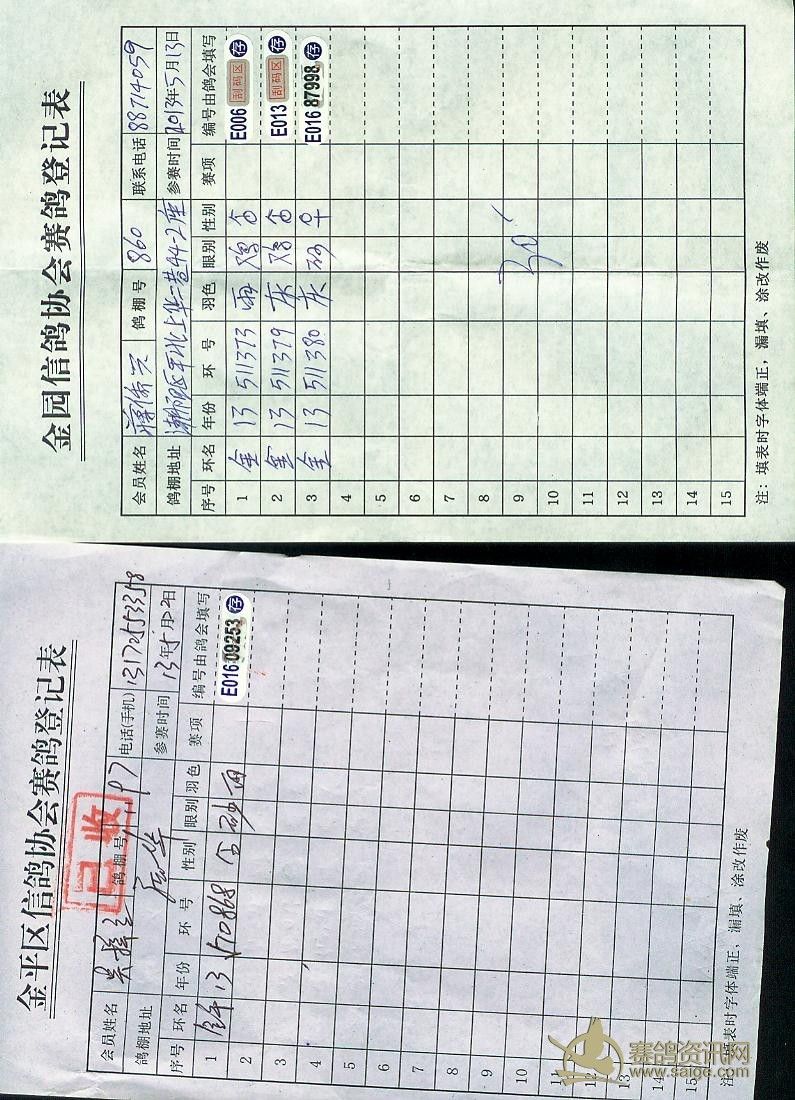 金园信鸽协会赛鸽登记表
会员姓名 蒋侨兴 鸽棚号 860 联系电话 88714059
鸽棚地址 44-2座 参赛时间 2013年5月13日
序号 环名 年份 环号 羽色 眼别 性别 赛项 编号由鸽会填写
1 金 13 511373 雨 鸡 E006 刮码区 存
2 金 13 511379 灰 鸡 E013 刮码区 存
3 金 13 511380 灰 砂 E016 87998 存
4
5
6
7
8
9
10
11
12
13
14
15
注：填表时字体端正，漏填、涂改作废
金平区信鸽协会赛鸽登记表
已收
会员姓名 鸽棚号 电话(手机)
鸽棚地址 参赛时间 13年5月12日
序号 环名 年份 环号 性别 眼别 羽色 赛项 编号由鸽会填写
1 13 砂 雨 E016 09253 存
2
3
4
5
6
7
8
9
10
11
12
13
14
15
注：填表时字体端正，漏填、涂改作废
赛鸽资讯网
www.saige.com